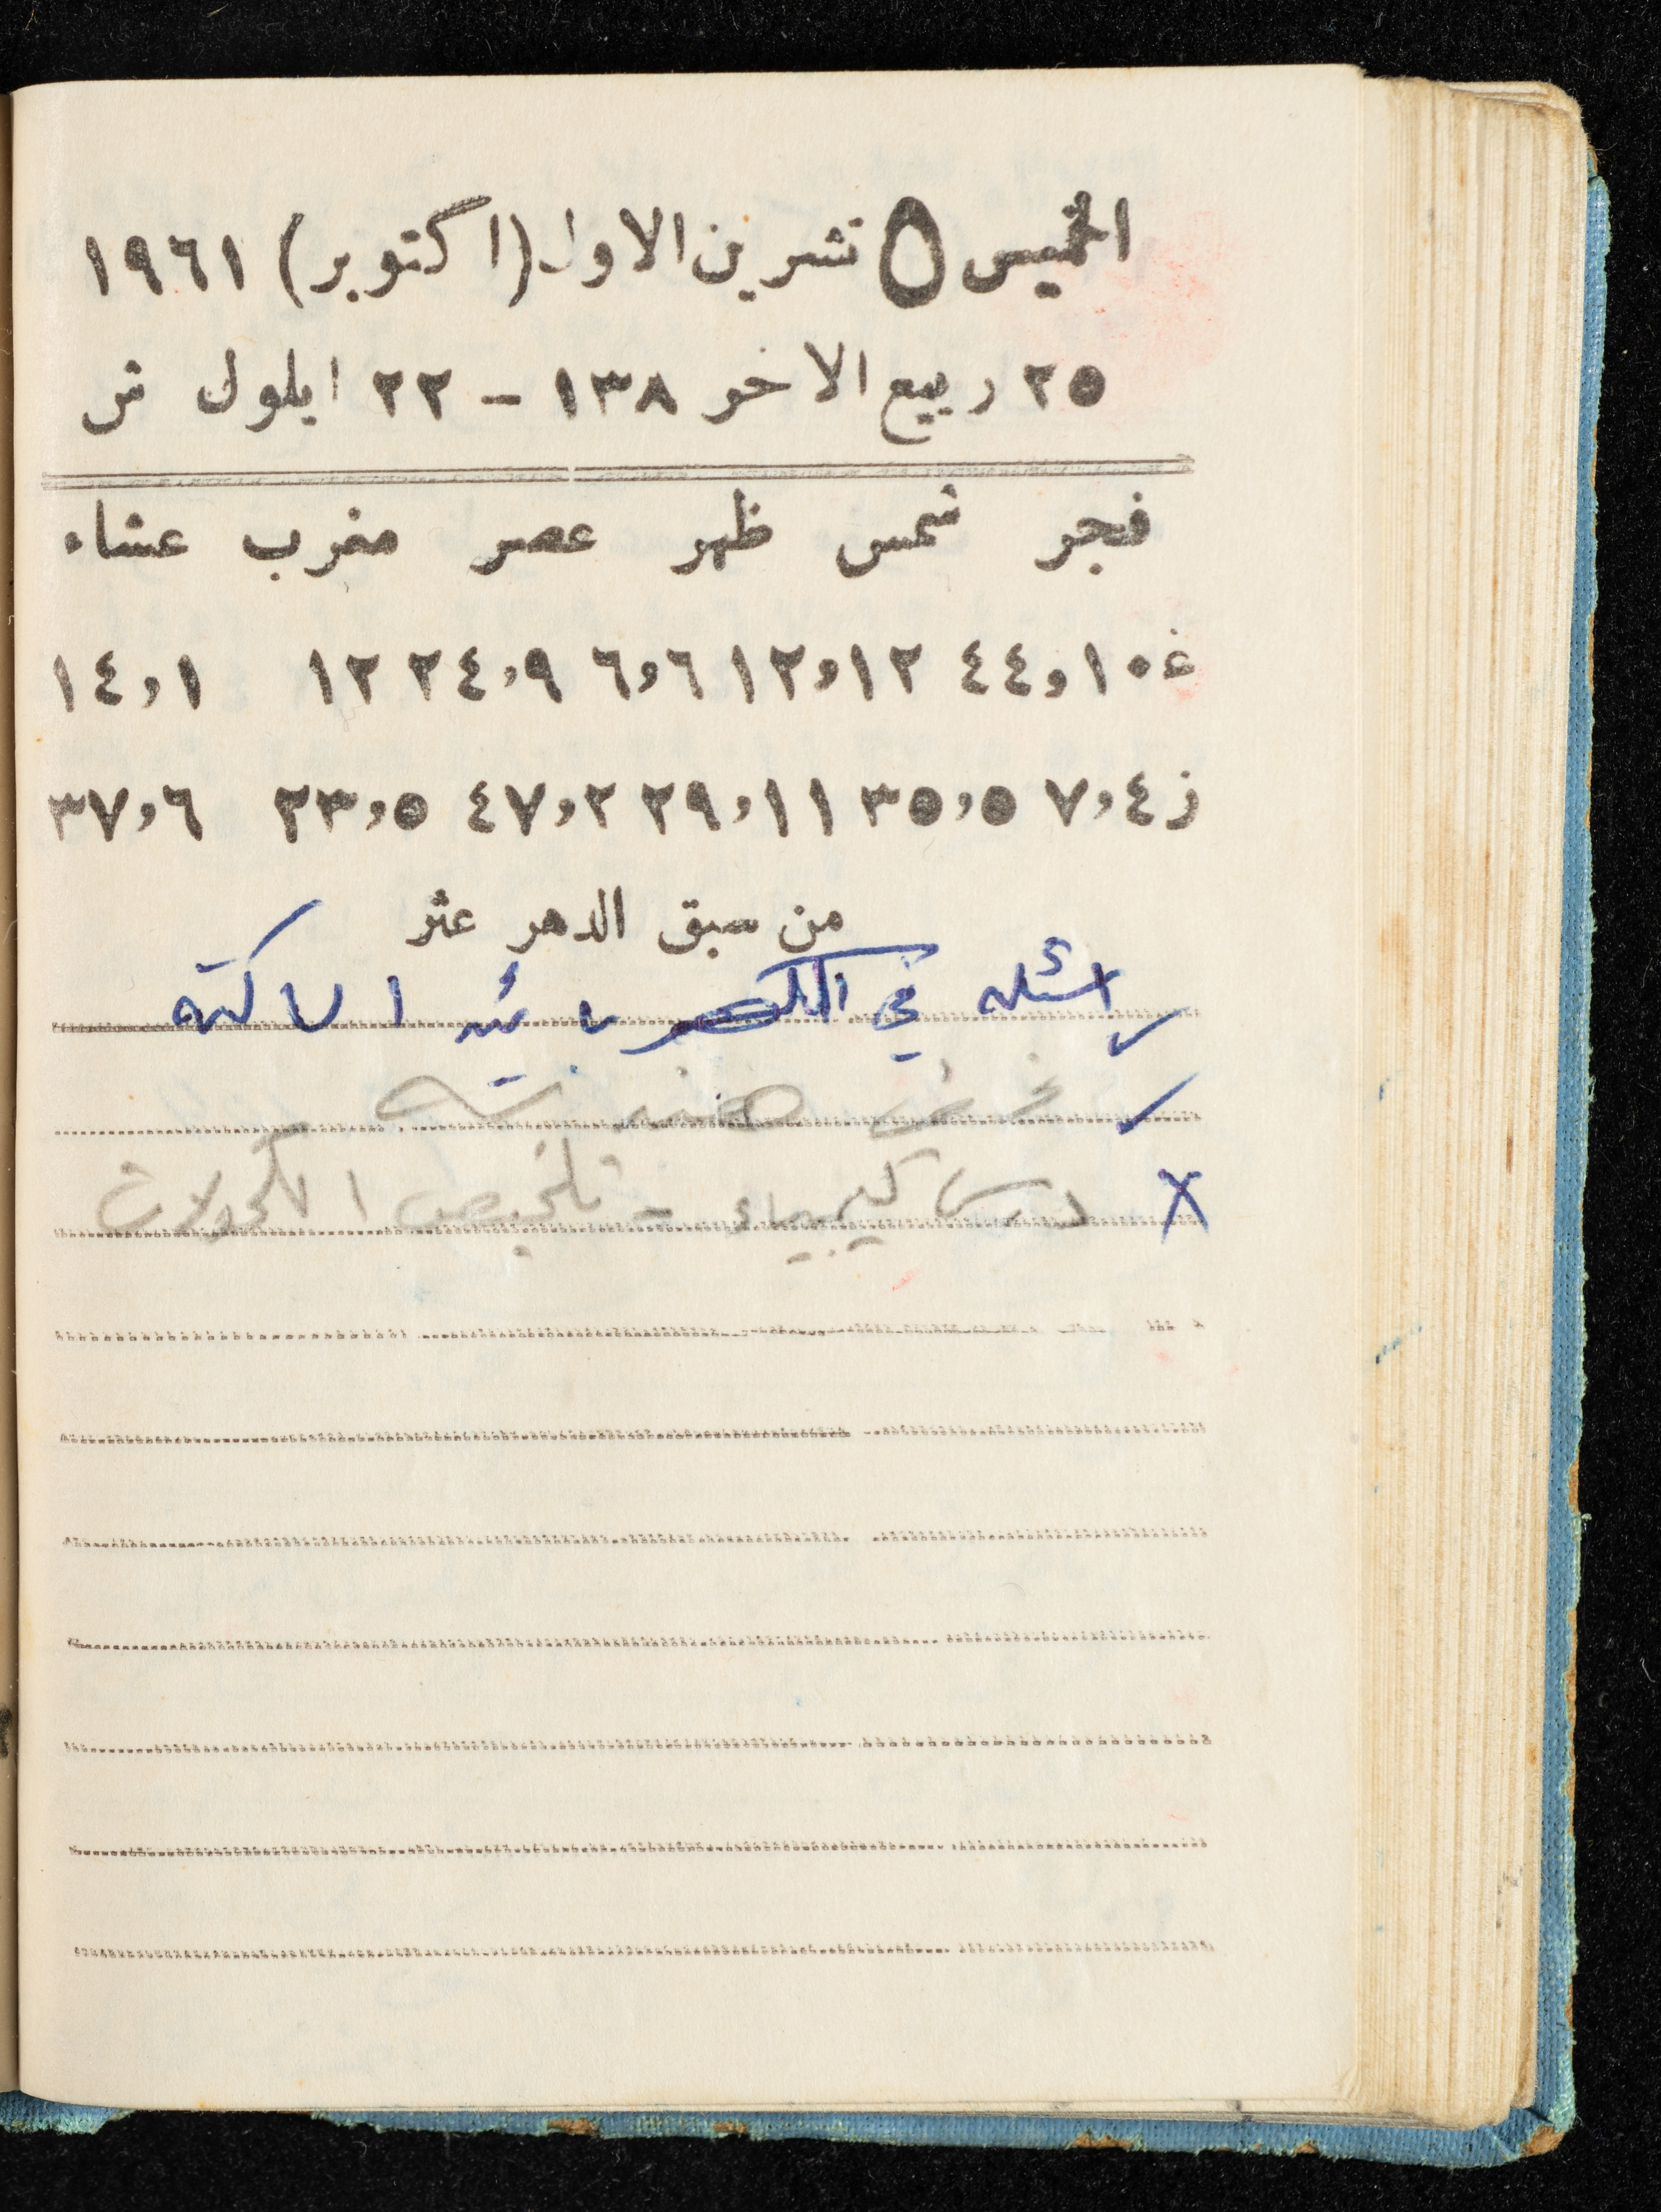 الخميس ٥ تشرين الاول (اكتوبر) ١٩٦١
٢٥ ربيع الاخر ١٣٨ - ٢٢ ايلول ش
فجر شمس ظهر عصر مغرب عشاء
غ ١٠,٤٤ ١٢,١٢ ٦,٦ ٩,٢٤ ١٢ ١,١٤
ز ٤,٧ ٥,٣٥ ١١,٢٩ ٢,٤٧ ٥,٢٣ ٦,٣٧
من سبق الدهر عثر
✓ اسئله في الكهربائيه الساكنه
✓
X درس كيمياء - تلخيص الكحولات